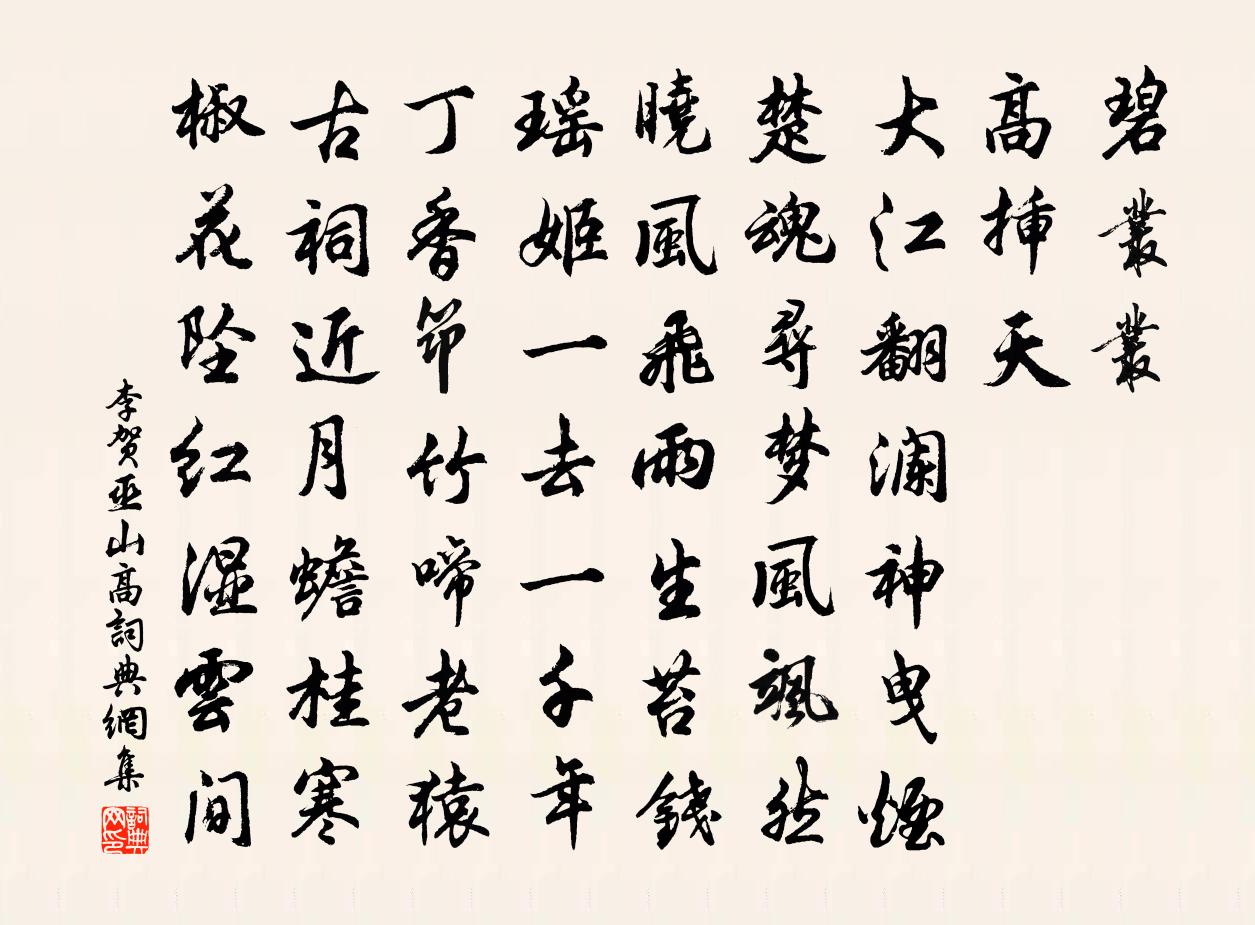 碧叢叢
高挿天
大江翻瀾神曳煙
楚魂尋梦風颯然
曉風飛雨生苔錢
瑶姬一去一千年
丁香筇竹啼老猿
古祠近月蟾桂寒
椒花坠红濕雲間
李贺巫山高詞典網集
詞典网印